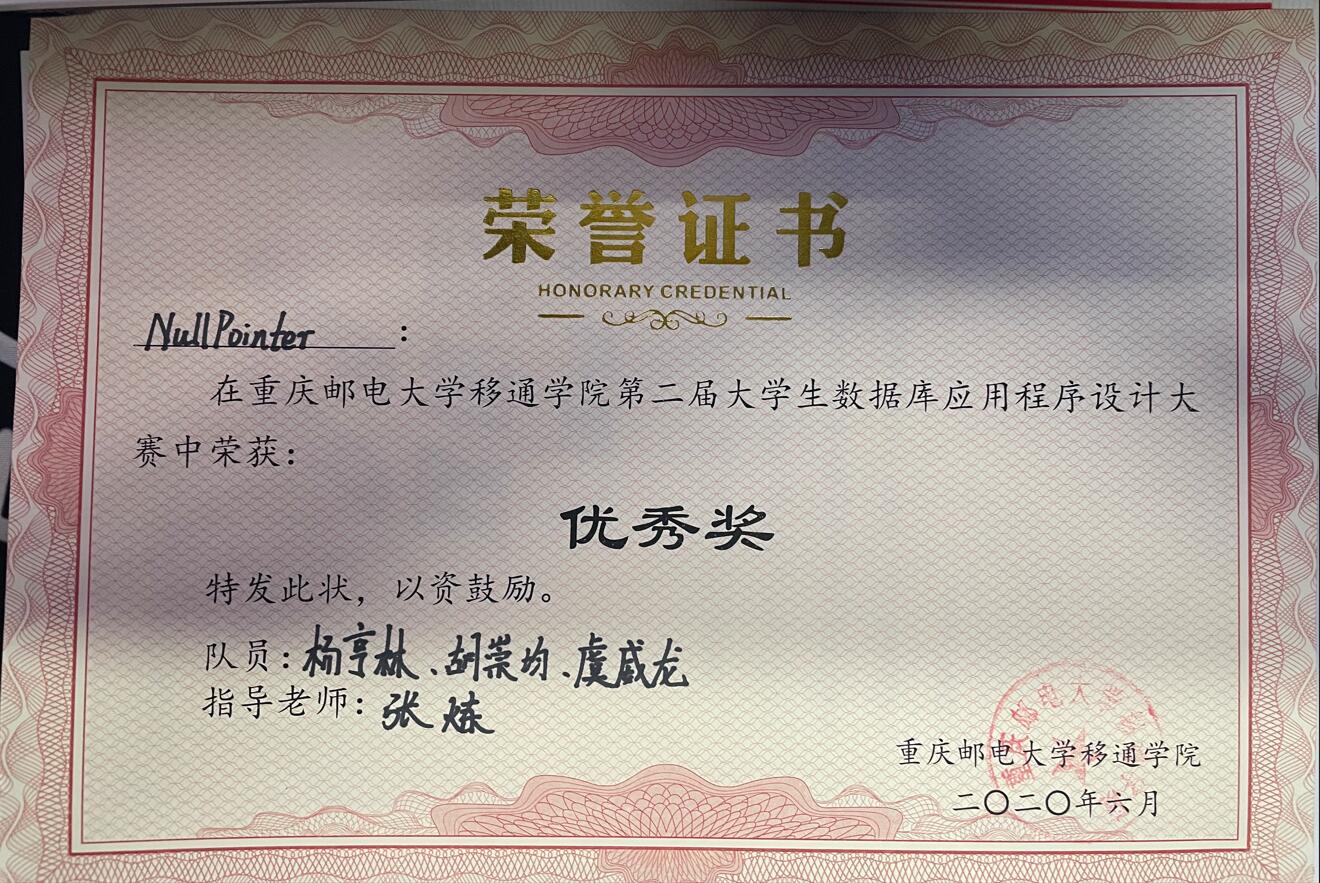 荣誉证书
HONORARY CREDENTIAL
NullPointer：
在重庆邮电大学移通学院第二届大学生数据库应用程序设计大
赛中荣获：
优秀奖
特发此状，以资鼓励。
队员：杨亨林、胡崇均、虞咸龙
指导老师：张炼
重庆邮电大学移通学院
二〇二〇年六月